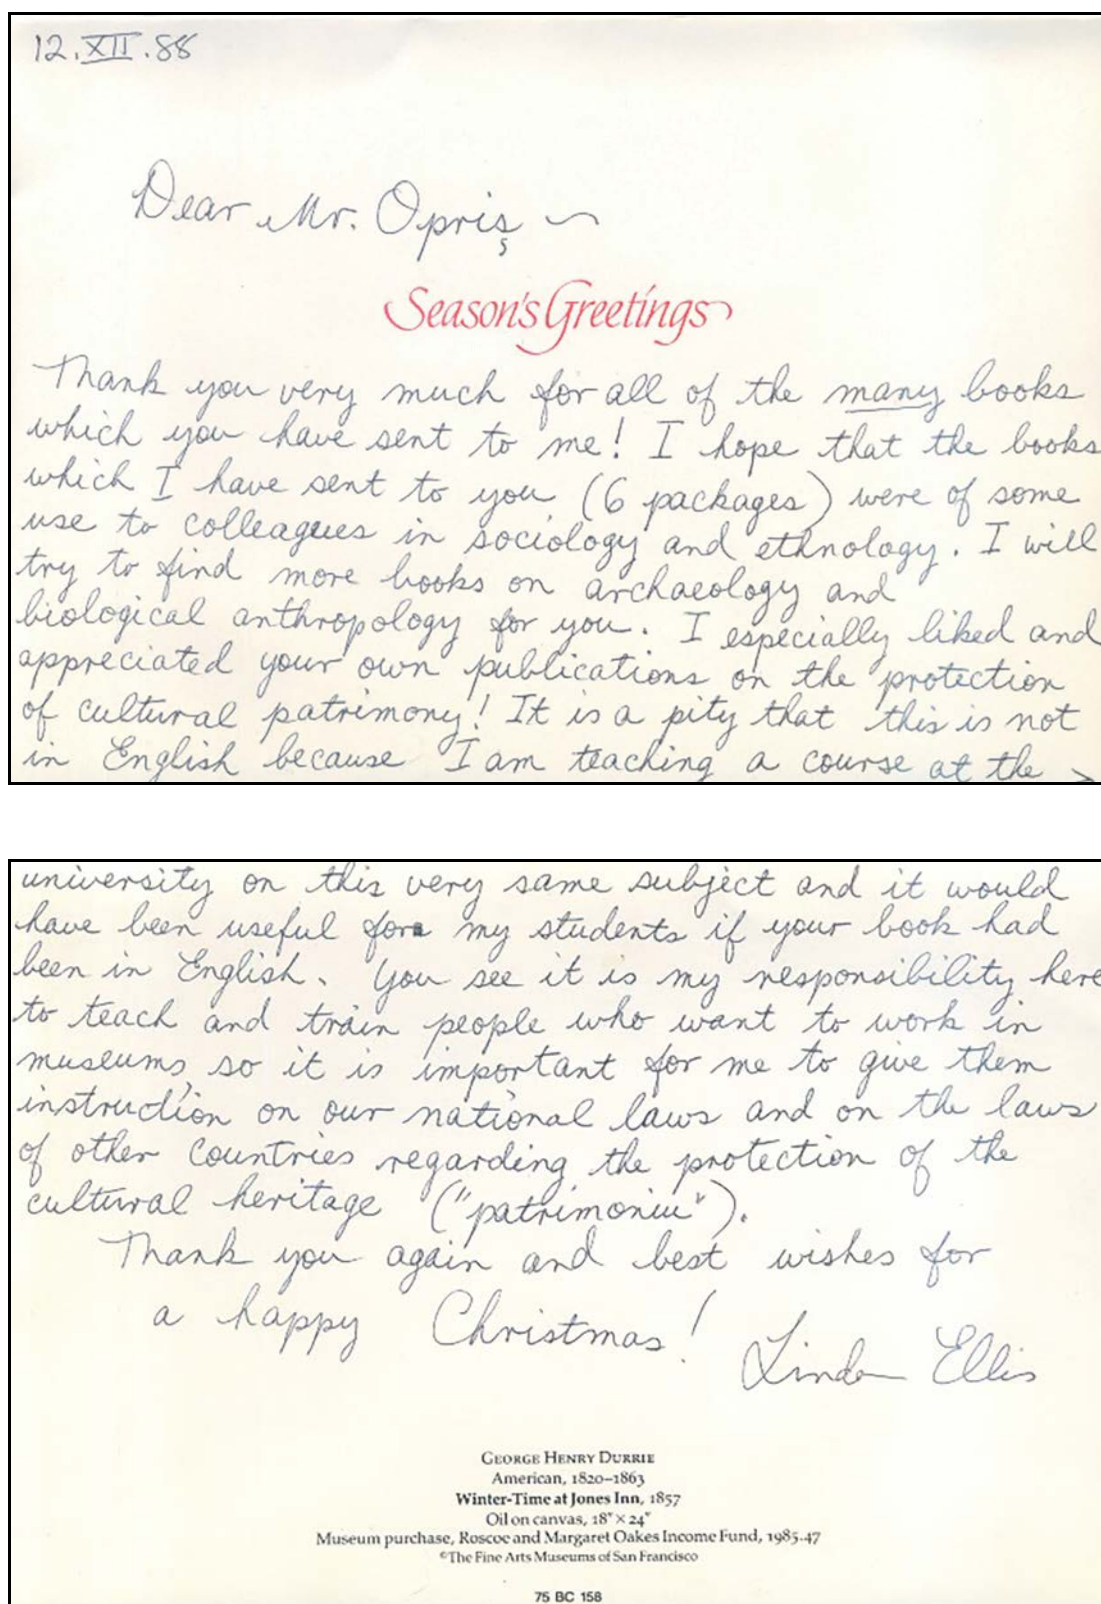 12.XII.88
Dear Mr. Opriş ~
Season's Greetings
Thank you very much for all of the many books
which you have sent to me! I hope that the books
which I have sent to you (6 packages) were of some
use to colleagues in sociology and ethnology. I will
try to find more books on archaeology and
biological anthropology for you. I especially liked and
appreciated your own publications on the protection
of cultural patrimony! It is a pity that this is not
in English because I am teaching a course at the >
university on this very same subject and it would
have been useful for my students if your book had
been in English. You see it is my responsibility here
to teach and train people who want to work in
museums, so it is important for me to give them
instruction on our national laws and on the laws
of other countries regarding the protection of the
cultural heritage ("patrimoniu").
Thank you again and best wishes for
a happy Christmas!
Linda Ellis
GEORGE HENRY DURRIE
American, 1820–1863
Winter-Time at Jones Inn, 1857
Oil on canvas, 18" × 24"
Museum purchase, Roscoe and Margaret Oakes Income Fund, 1985.47
©The Fine Arts Museums of San Francisco
75 BC 158